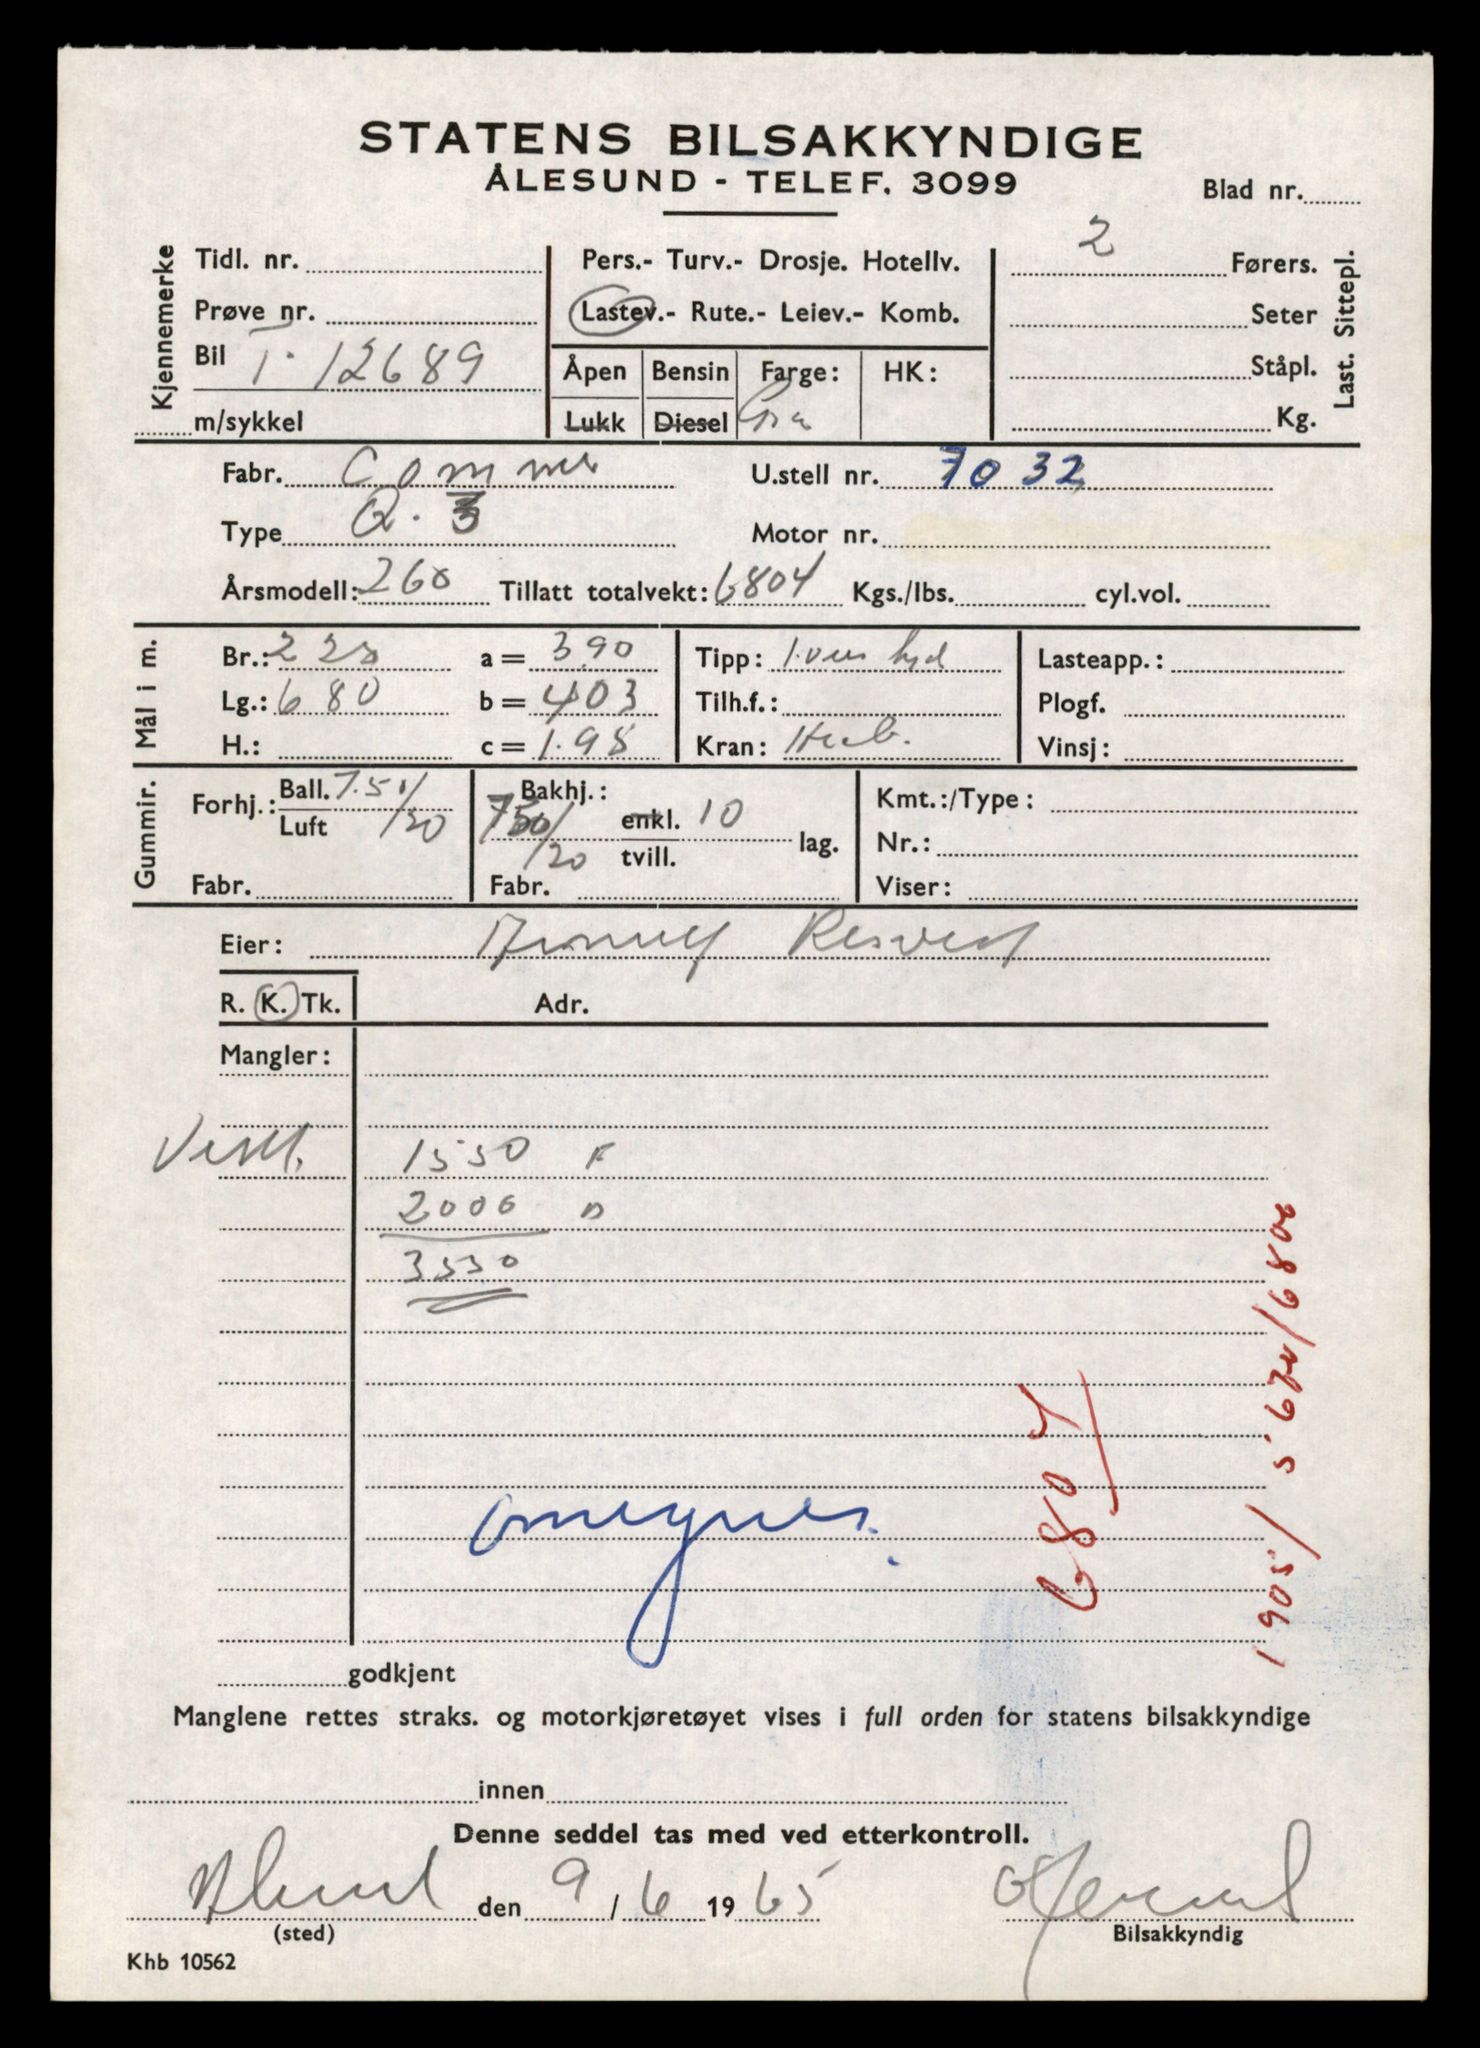 STATENS BILSAKKYNDIGE
ÅLESUND - TELEF. 3099
Blad nr.
Kjennemerke
Tidl. nr.
Prøve nr.
Bil T-12689
m/sykkel
Pers.- Turv.- Drosje. Hotellv.
Lastev.- Rute.- Leiev.- Komb.
Åpen Bensin Farge: HK:
Lukk Diesel
2 Førers.
Seter
Ståpl.
Kg.
Last. Sittepl.
Fabr. Commer U.stell nr. 7032
Type Q. 3 Motor nr.
Årsmodell: 260 Tillatt totalvekt: 6804 Kgs./lbs. cyl.vol.
Mål i m.
Br.: 228 a = 390 Tipp: Lasteapp.:
Lg.: 680 b = 403 Tilh.f.: Plogf.
H.: c = 1.98 Kran: Vinsj:
Gummir.
Forhj.: Ball. 7.50/20
Luft
Fabr.
Bakhj.:
750/20 enkl. 10 lag.
tvill.
Fabr.
Kmt.:/Type:
Nr.:
Viser:
Eier:
R. K. Tk. Adr.
Mangler:
1550 F
2000 B
3550
6804
1905/5.670/6800
godkjent
Manglene rettes straks. og motorkjøretøyet vises i full orden for statens bilsakkyndige
innen
Denne seddel tas med ved etterkontroll.
den 9/6 1965
(sted) Bilsakkyndig
Khb 10562